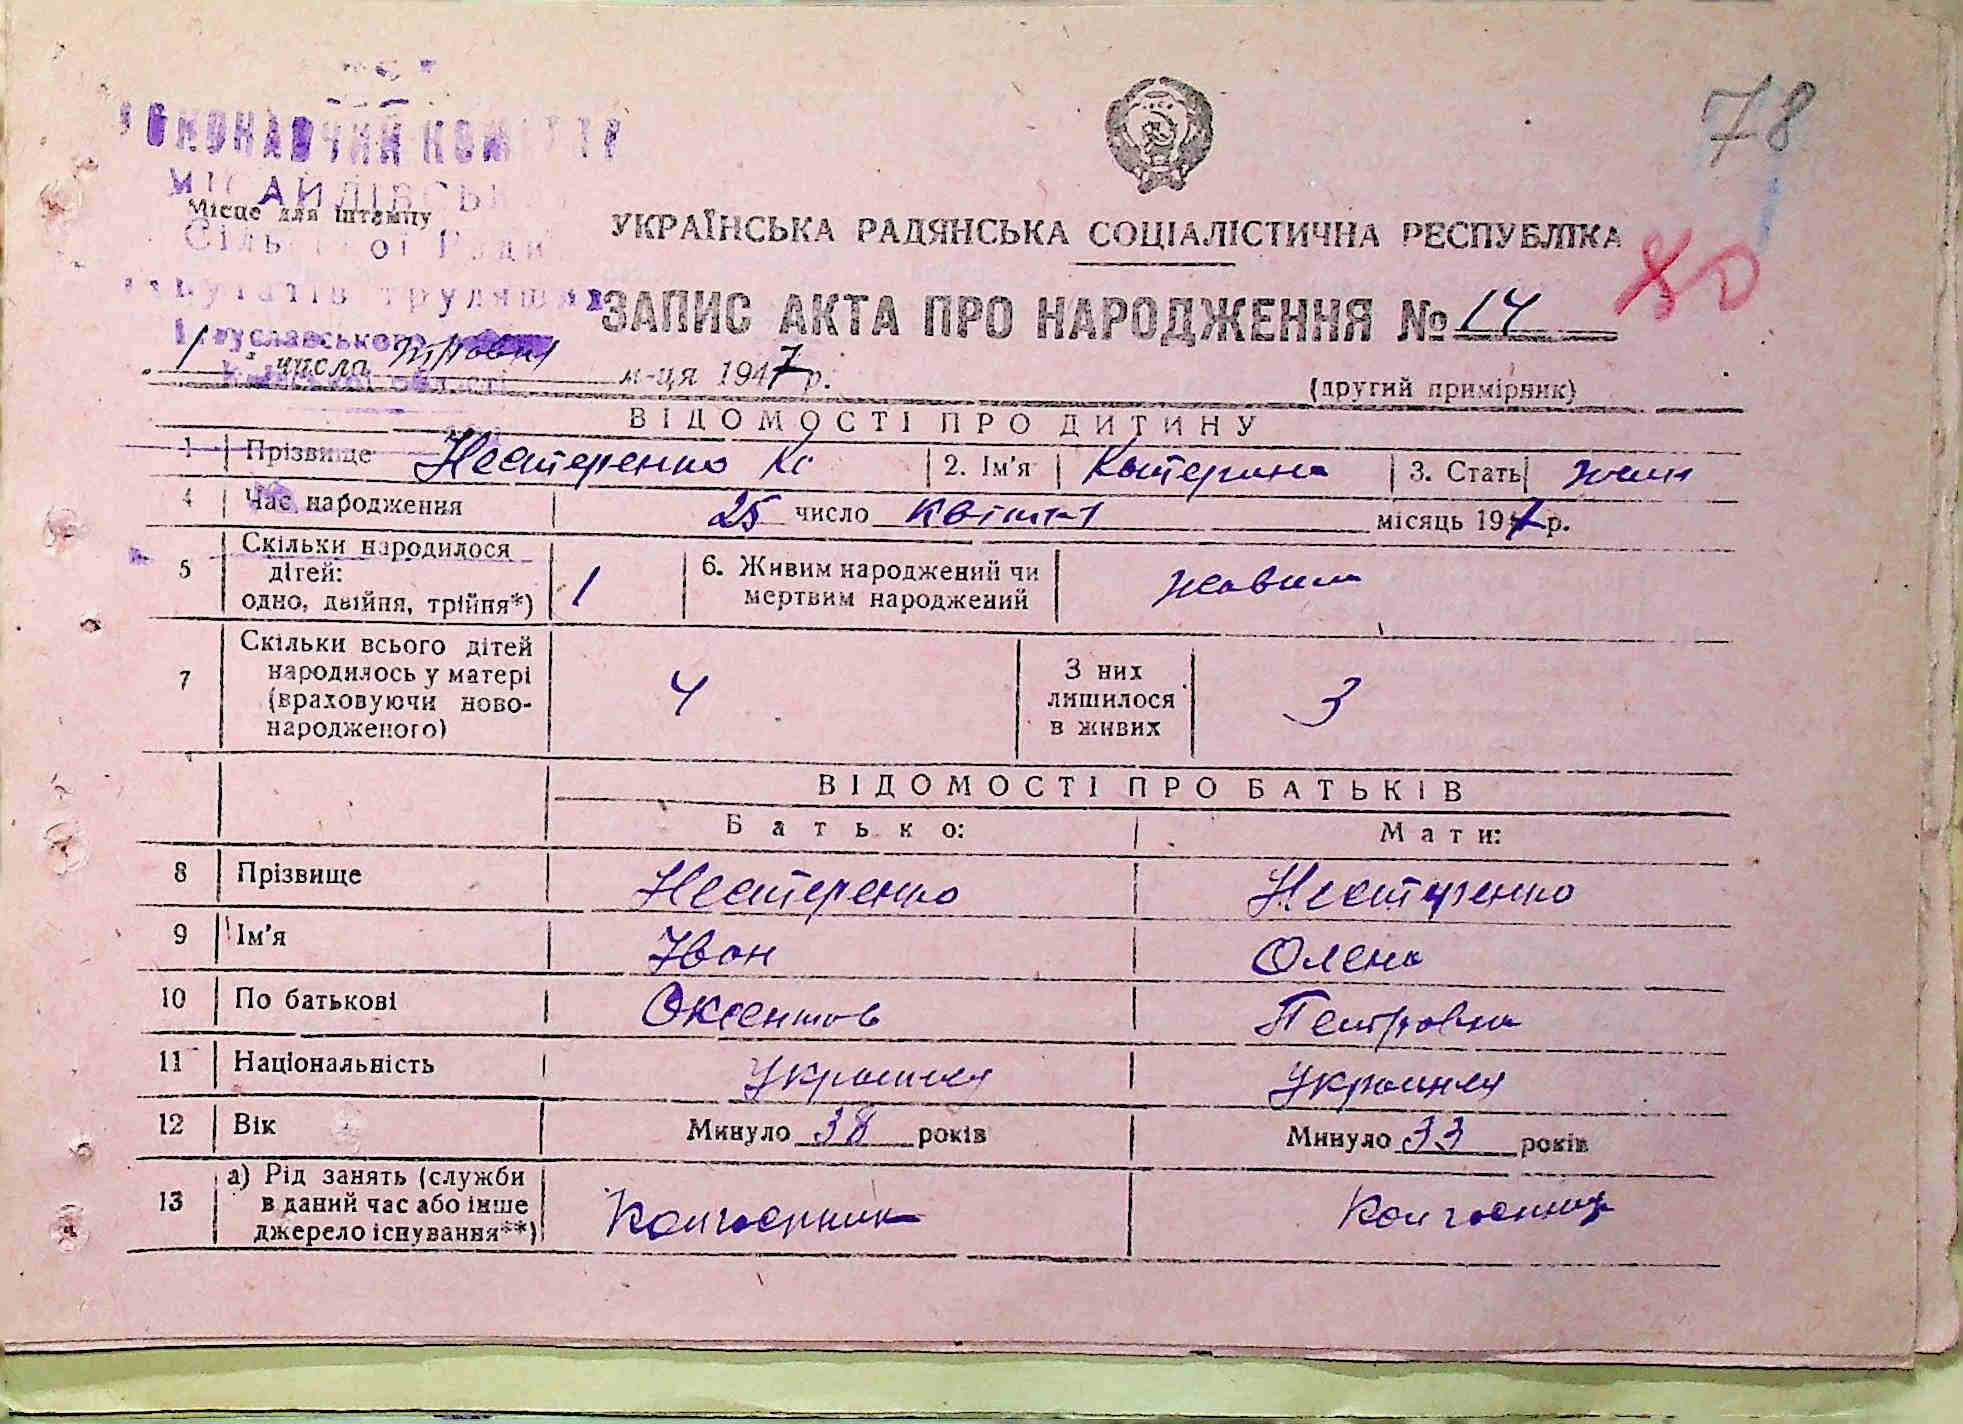 78
МІСАЙЛІВСЬК
Місце для штампу
Сільської Ради
УКРАЇНСЬКА РАДЯНСЬКА СОЦІАЛІСТИЧНА РЕСПУБЛІКА
80
ЗАПИС АКТА ПРО НАРОДЖЕННЯ № 14
1 числа травня м-ця 1947 р.
(другий примірник)
ВІДОМОСТІ ПРО ДИТИНУ
1 Прізвище Нестеренко Ка 2. Ім'я Катерина 3. Стать жін
4 Час народження 25 число квітня місяць 1947 р.
5 Скільки народилося дітей: одно, двійня, трійня*) 1 6. Живим народжений чи мертвим народжений живим
7 Скільки всього дітей народилось у матері (враховуючи ново-народженого) 4 З них лишилося в живих 3
ВІДОМОСТІ ПРО БАТЬКІВ
Батько: Мати:
8 Прізвище Нестеренко Нестеренко
9 Ім'я Іван Олена
10 По батькові Оксентов Петровна
11 Національність
12 Вік Минуло 38 років Минуло 33 років
13 а) Рід занять (служби в даний час або інше джерело існування**) Колгоспник Колгоспниця